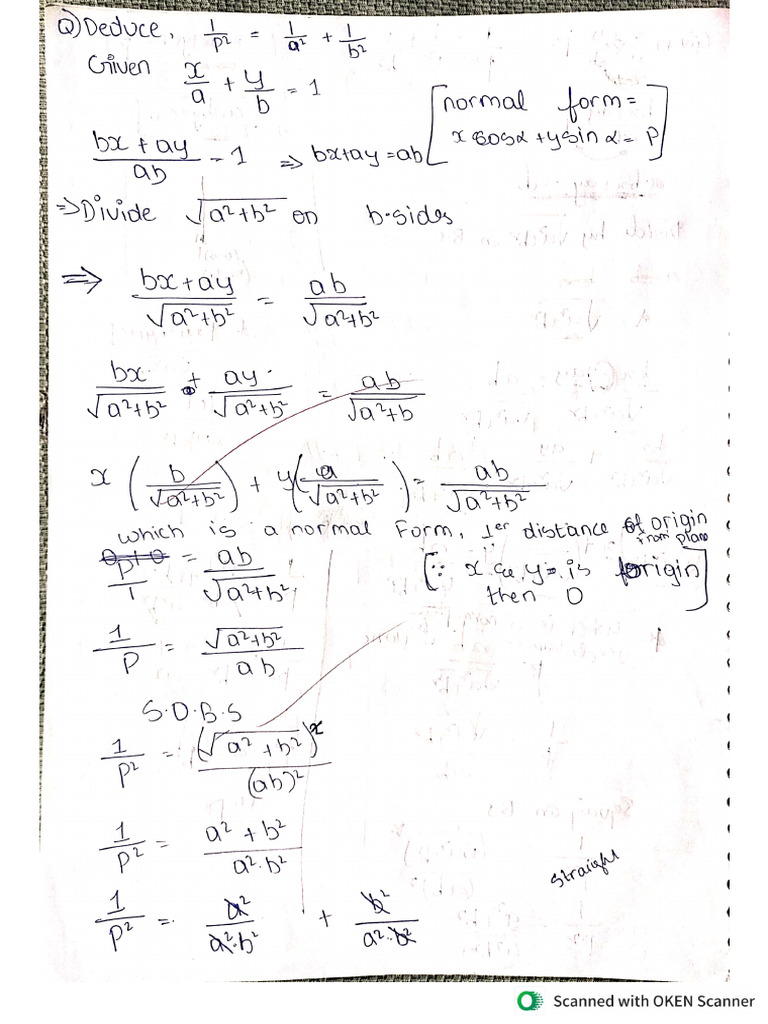 Q) Deduce, 1/p² = 1/a² + 1/b²
Given x/a + y/b = 1
[normal form =
x cosα + y sin α = P]
bx + ay/ab = 1 ⇒ bx+ay = ab
⇒ Divide √a²+b² on b.sides
⇒ bx + ay/√a²+b² = ab/√a²+b²
bx/√a²+b² + ay/√a²+b² = ab/√a²+b
x (b/√a²+b²) + y(a/√a²+b²) = ab/√a²+b²
which is a normal Form, 1er distance of origin
from
P/1 = ab/√a²+b²
[∵ x y is origin
then 0]
1/P = √a²+b²/ab
S.O.B.S
1/P² = (√a²+b²)²/(ab)²
1/P² = a²+b²/a².b²
straight
1/P² = a²/a².b² + b²/a².b²
Scanned with OKEN Scanner